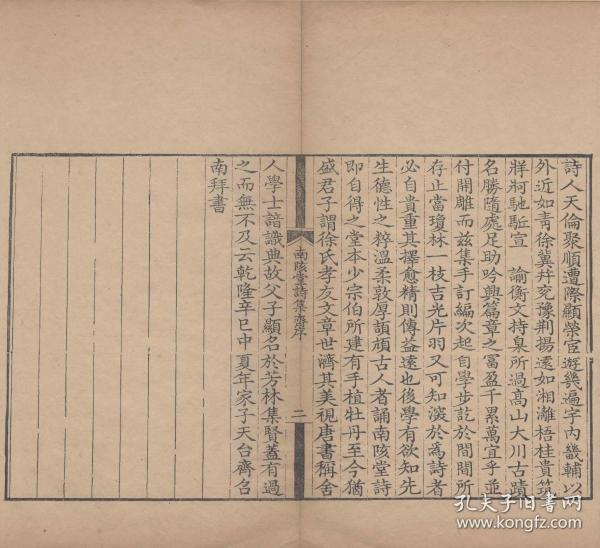 詩人天倫聚順遭際顯榮宦遊幾遍宇內畿輔以
外近如青徐冀幷兗豫荆揚遠如湘灕梧桂貴筑
牂牁馳駈宣 諭衡文持臬所過髙山大川古蹟
名勝隨處足助吟興篇章之冨盈千累萬宜乎並
付開雕而兹集手訂編次起自學步訖於閒閒所
存止當瓊林一枝吉光片羽又可知淡於爲詩者
必自貴重其擇愈精則傳益遠也後學有欲知先
生德性之粹温柔敦厚頡頏古人者誦南陔堂詩
即自得之堂本少宗伯所建有手植牡丹至今猶
盛君子謂徐氏孝友文章世濟其美視唐書稱舍
南陔堂詩集齊序
二
人學士諳識典故父子顯名於芳林集賢蓋有過
之而無不及云乾隆辛巳中夏年家子天台齊召
南拜書
孔夫子旧书网
www.kongfz.com